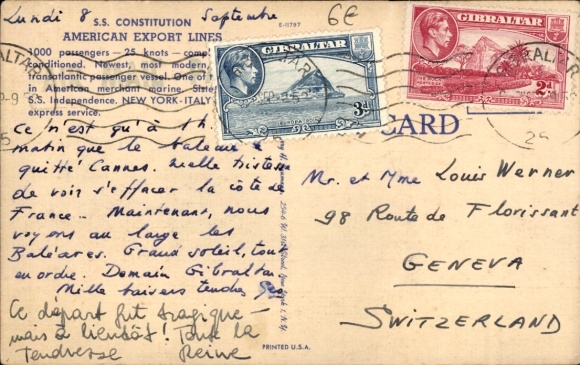 Lundi 8 Septembre
6€
S.S. CONSTITUTION
E-11797
AMERICAN EXPORT LINES
1000 passengers — 25 knots —
conditioned. Newest, most modern,
transatlantic passenger vessel. One of
in American merchant marine. Sister
S.S. Independence. NEW YORK-ITALY
express service.
GIBRALTAR
3d
GIBRALTAR
2d
CARD
Ce n'est qu'à
matin que le bateau a
quitté Cannes. Quelle tristesse
de voir s'effacer la côte de
France — Maintenant, nous
voyons au large les
Baléares. Grand soleil, tout
en ordre. Demain Gibraltar.
Mille baisers tendres
Ce départ fut tragique —
mais à bientôt! Toute la
Tendresse Reine
Mr. et Mme Louis Werner
98 Route de Florissant
GENEVA
SWITZERLAND
PRINTED U.S.A.